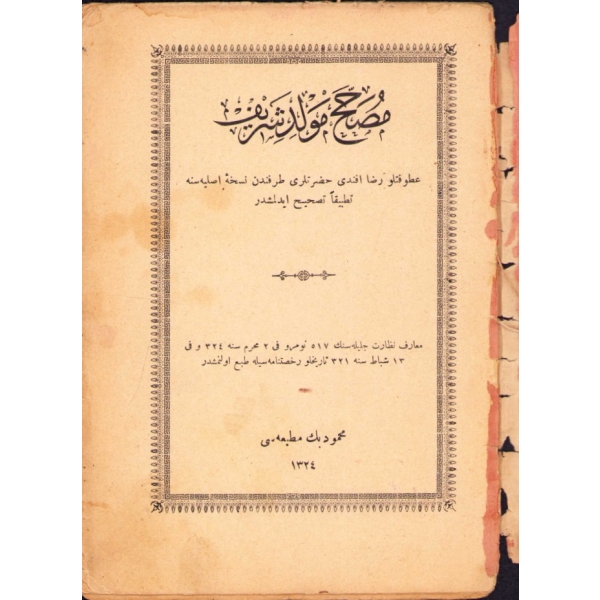 مُصَحَّحْ مَوْلِدِ شَرِيفْ
عطوفتلو رضا افندی حضرتلری طرفندن نسخهٔ اصلیه‌سنه
تطبیقاً تصحیح ایدلمشدر
معارف نظارت جلیله‌سنك ٥١٧ نومرو فی ٢ محرم سنه ٣٢٤ و فی
١٣ شباط سنه ٣٢١ تاریخلو رخصتنامه‌سیله طبع اولنمشدر
محمود بك مطبعه‌سی
١٣٢٤